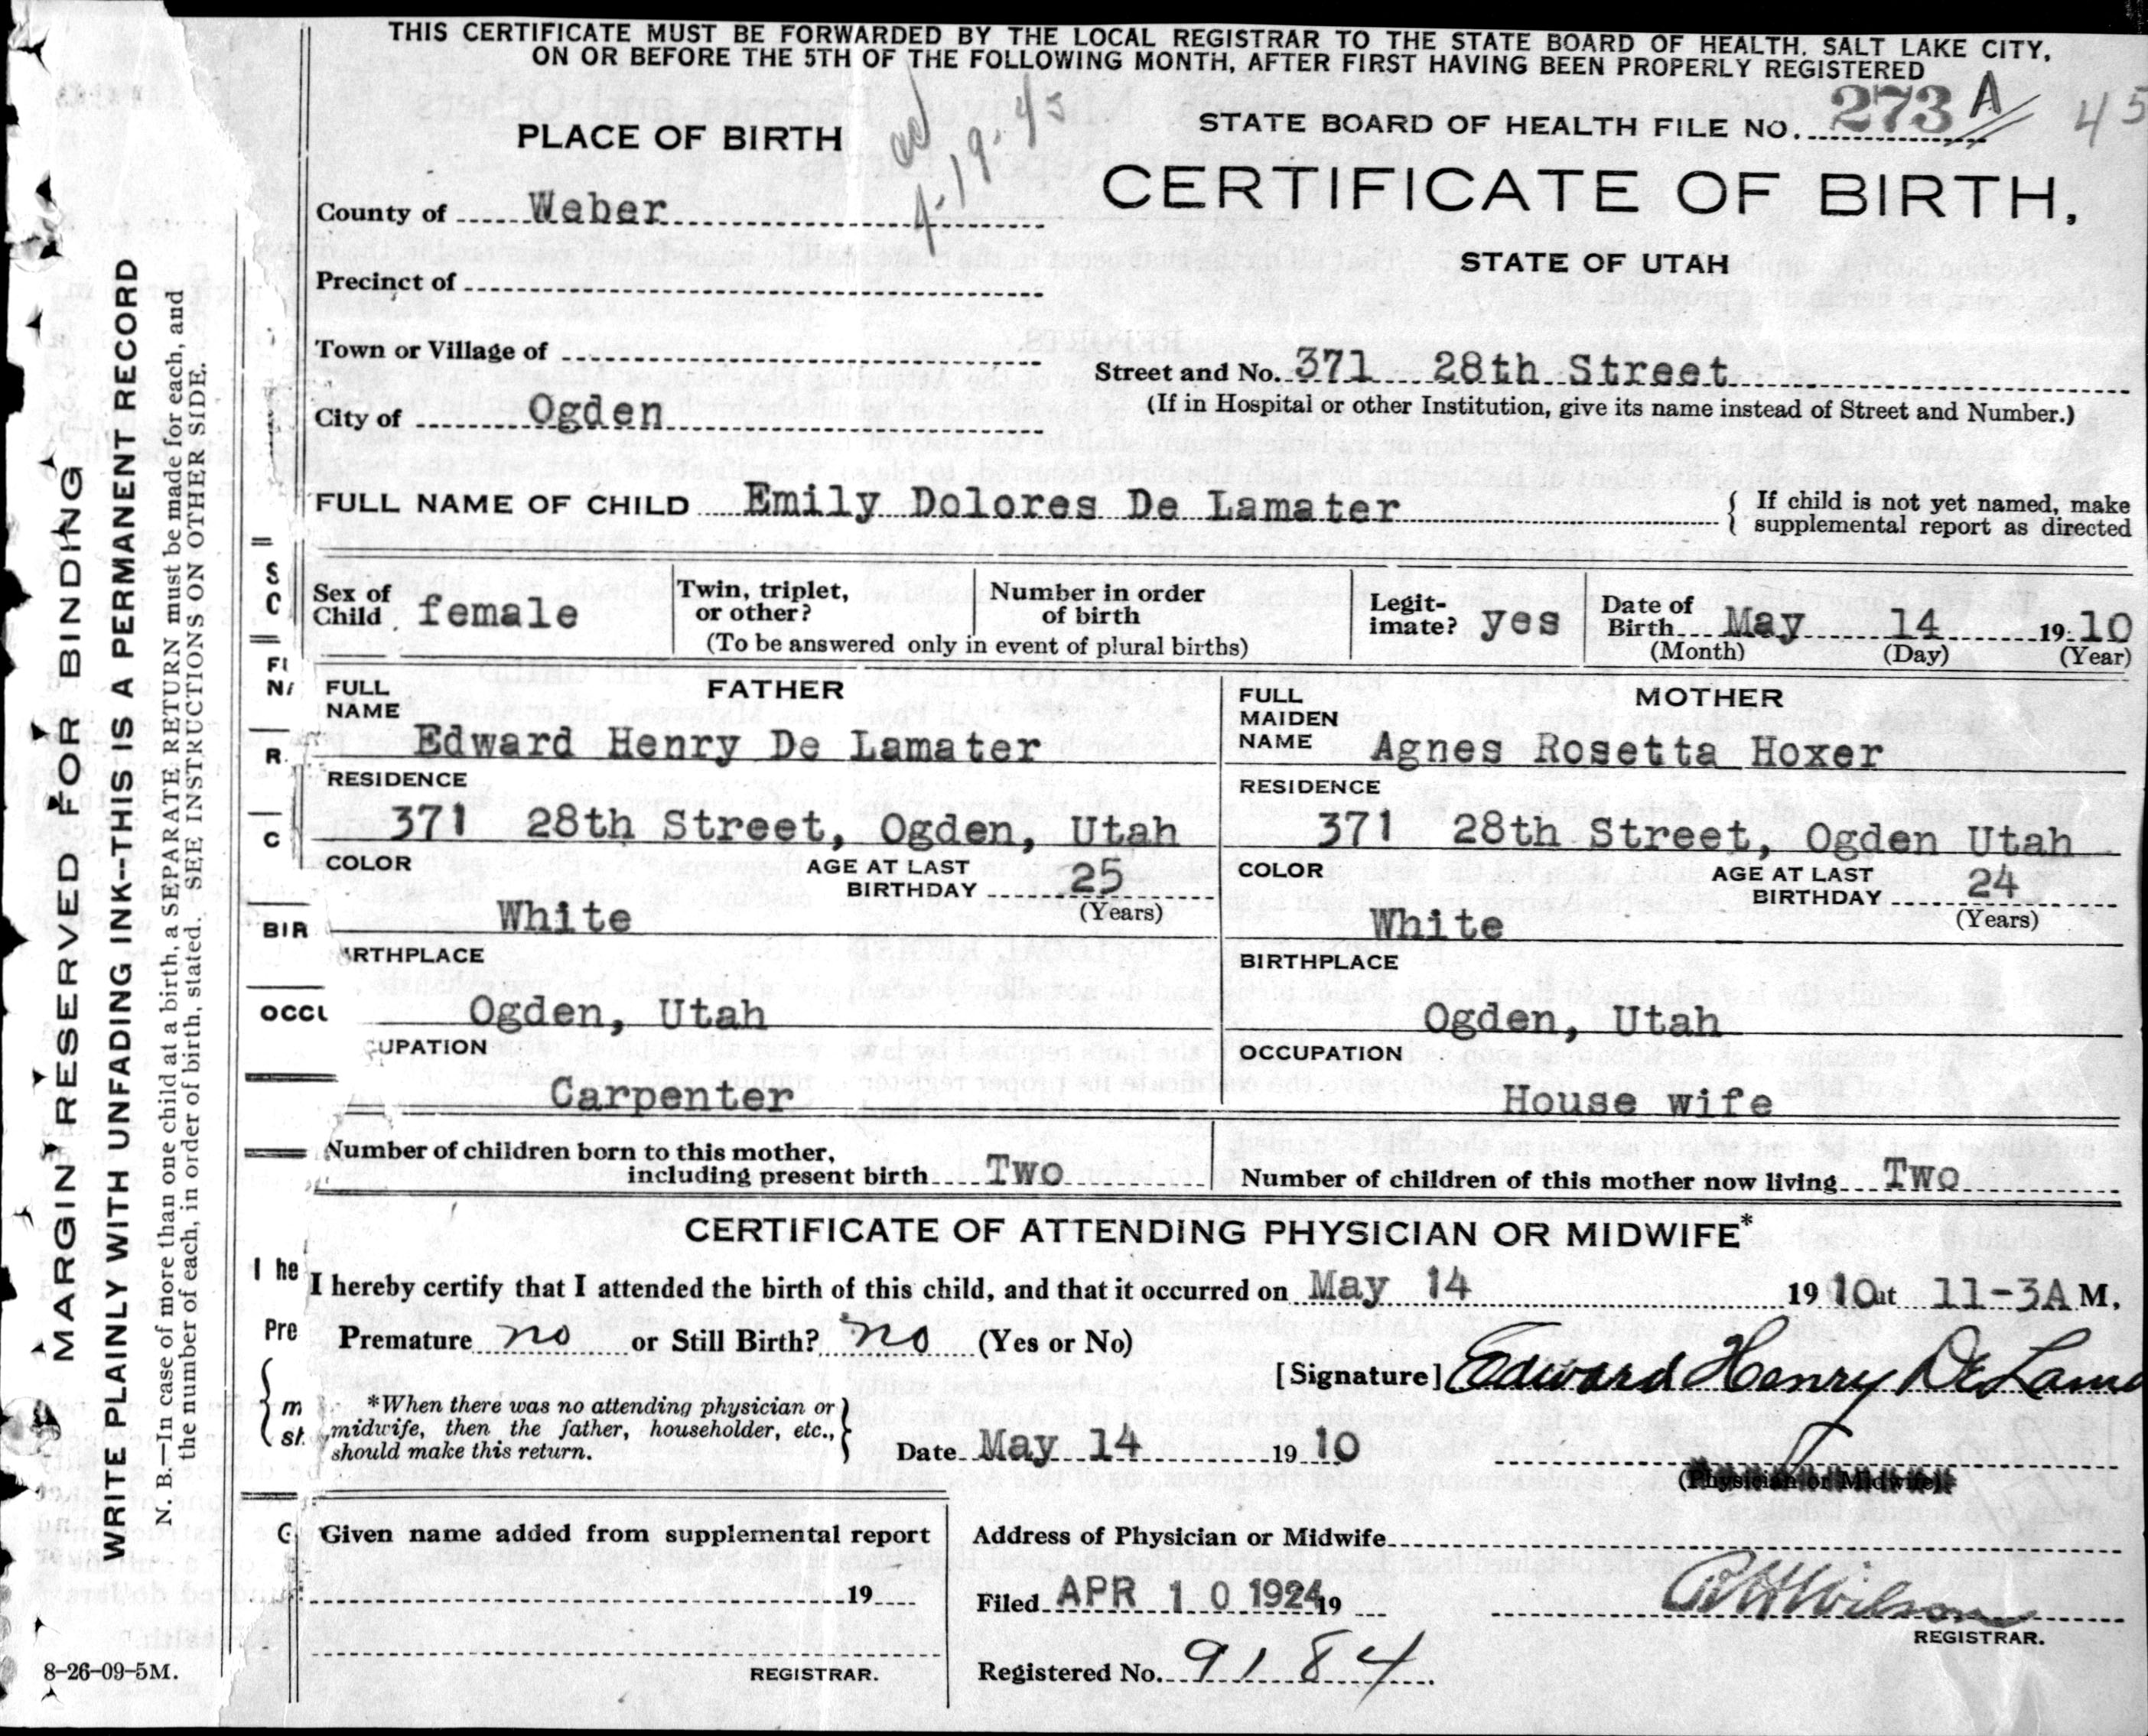 THIS CERTIFICATE MUST BE FORWARDED BY THE LOCAL REGISTRAR TO THE STATE BOARD OF HEALTH, SALT LAKE CITY,
ON OR BEFORE THE 5TH OF THE FOLLOWING MONTH, AFTER FIRST HAVING BEEN PROPERLY REGISTERED
STATE BOARD OF HEALTH FILE NO. 273 A 45
4-19-45
PLACE OF BIRTH
CERTIFICATE OF BIRTH,
STATE OF UTAH
County of Weber
Precinct of
Town or Village of
Street and No. 371 28th Street
(If in Hospital or other Institution, give its name instead of Street and Number.)
City of Ogden
FULL NAME OF CHILD Emily Dolores De Lamater
If child is not yet named, make
supplemental report as directed
Sex of
Child female
Twin, triplet,
or other?
Number in order
of birth
(To be answered only in event of plural births)
Legit-
imate? yes
Date of
Birth May 14 1910
(Month) (Day) (Year)
FULL
NAME
FATHER
Edward Henry De Lamater
FULL
MAIDEN
NAME
MOTHER
Agnes Rosetta Hoxer
RESIDENCE
371 28th Street, Ogden, Utah
RESIDENCE
371 28th Street, Ogden Utah
COLOR
White
AGE AT LAST
BIRTHDAY 25
(Years)
COLOR
White
AGE AT LAST
BIRTHDAY 24
(Years)
BIR
RTHPLACE
Ogden, Utah
BIRTHPLACE
Ogden, Utah
OCCU
UPATION
Carpenter
OCCUPATION
House wife
Number of children born to this mother,
including present birth Two
Number of children of this mother now living Two
CERTIFICATE OF ATTENDING PHYSICIAN OR MIDWIFE*
I he
I hereby certify that I attended the birth of this child, and that it occurred on May 14 1910 at 11-3A M,
Pre
Premature no or Still Birth? no (Yes or No)
[Signature] Edward Henry De Lama
*When there was no attending physician or
midwife, then the father, householder, etc.,
should make this return.
Date May 14 1910
(Physician or Midwife)
Given name added from supplemental report
19
REGISTRAR.
Address of Physician or Midwife
Filed APR 10 1924 19
Wilson
REGISTRAR.
Registered No. 9184
MARGIN RESERVED FOR BINDING
WRITE PLAINLY WITH UNFADING INK--THIS IS A PERMANENT RECORD
N. B.—In case of more than one child at a birth, a SEPARATE RETURN must be made for each, and
the number of each, in order of birth, stated. SEE INSTRUCTIONS ON OTHER SIDE.
8-26-09-5M.